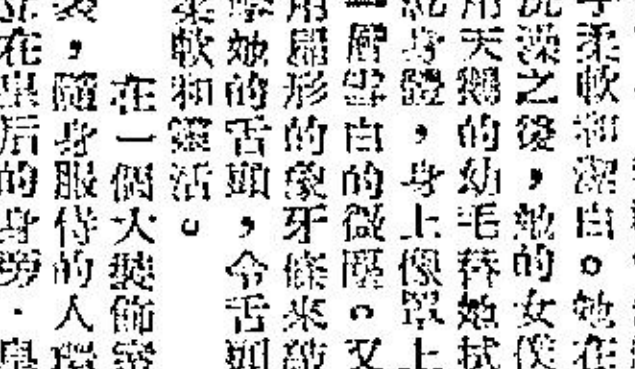 柔軟和潔白。她在
澡之後，她的女僕
用天鵝的幼毛替她拭
身體，身上像罩上
一層雪白的微塵。又
用扇形的象牙條來
她的舌頭，令舌如
柔軟和靈活。
在一個大裝飾
，隨身服侍的人環
在皇后的身旁．皇